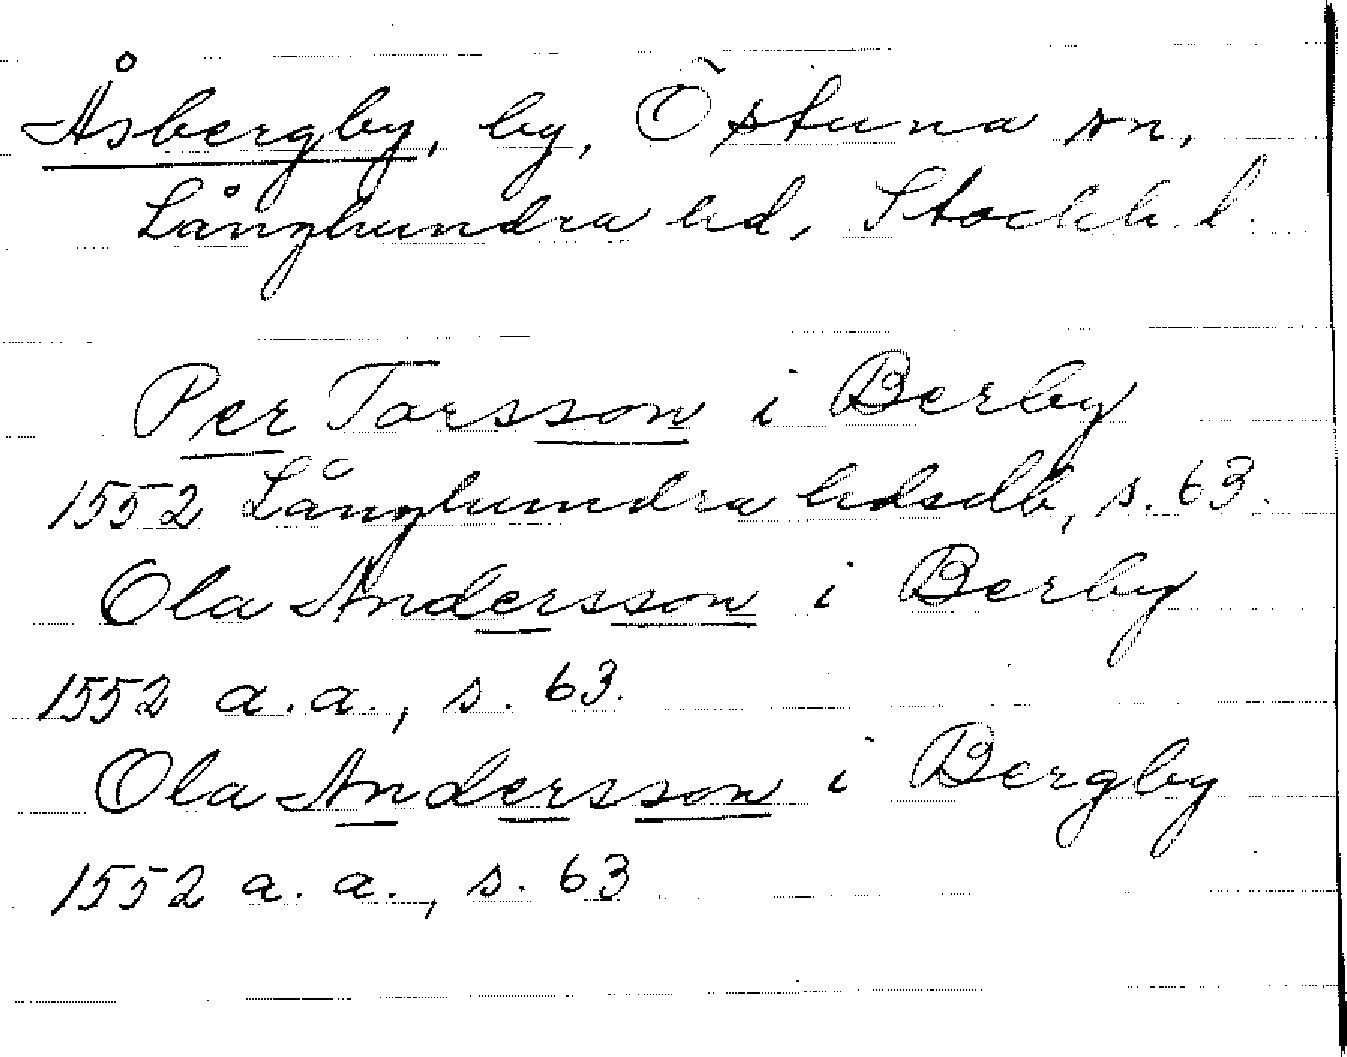 Åsbergby, by, Östuna sn,
Långhundra hd, Stockh. l.
Per Torsson i Berby
1552 Långhundra hdsdb, s. 63.
Ola Andersson i Berby
1552 a.a., s. 63.
Ola Andersson i Bergby
1552 a.a., s. 63